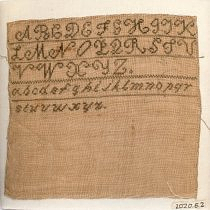 ABCDEFGHIJK
LMNOPQRSTU
VWXYZ.
abcdefghijklmnopqr
stuvwxyz.
2020.6.2